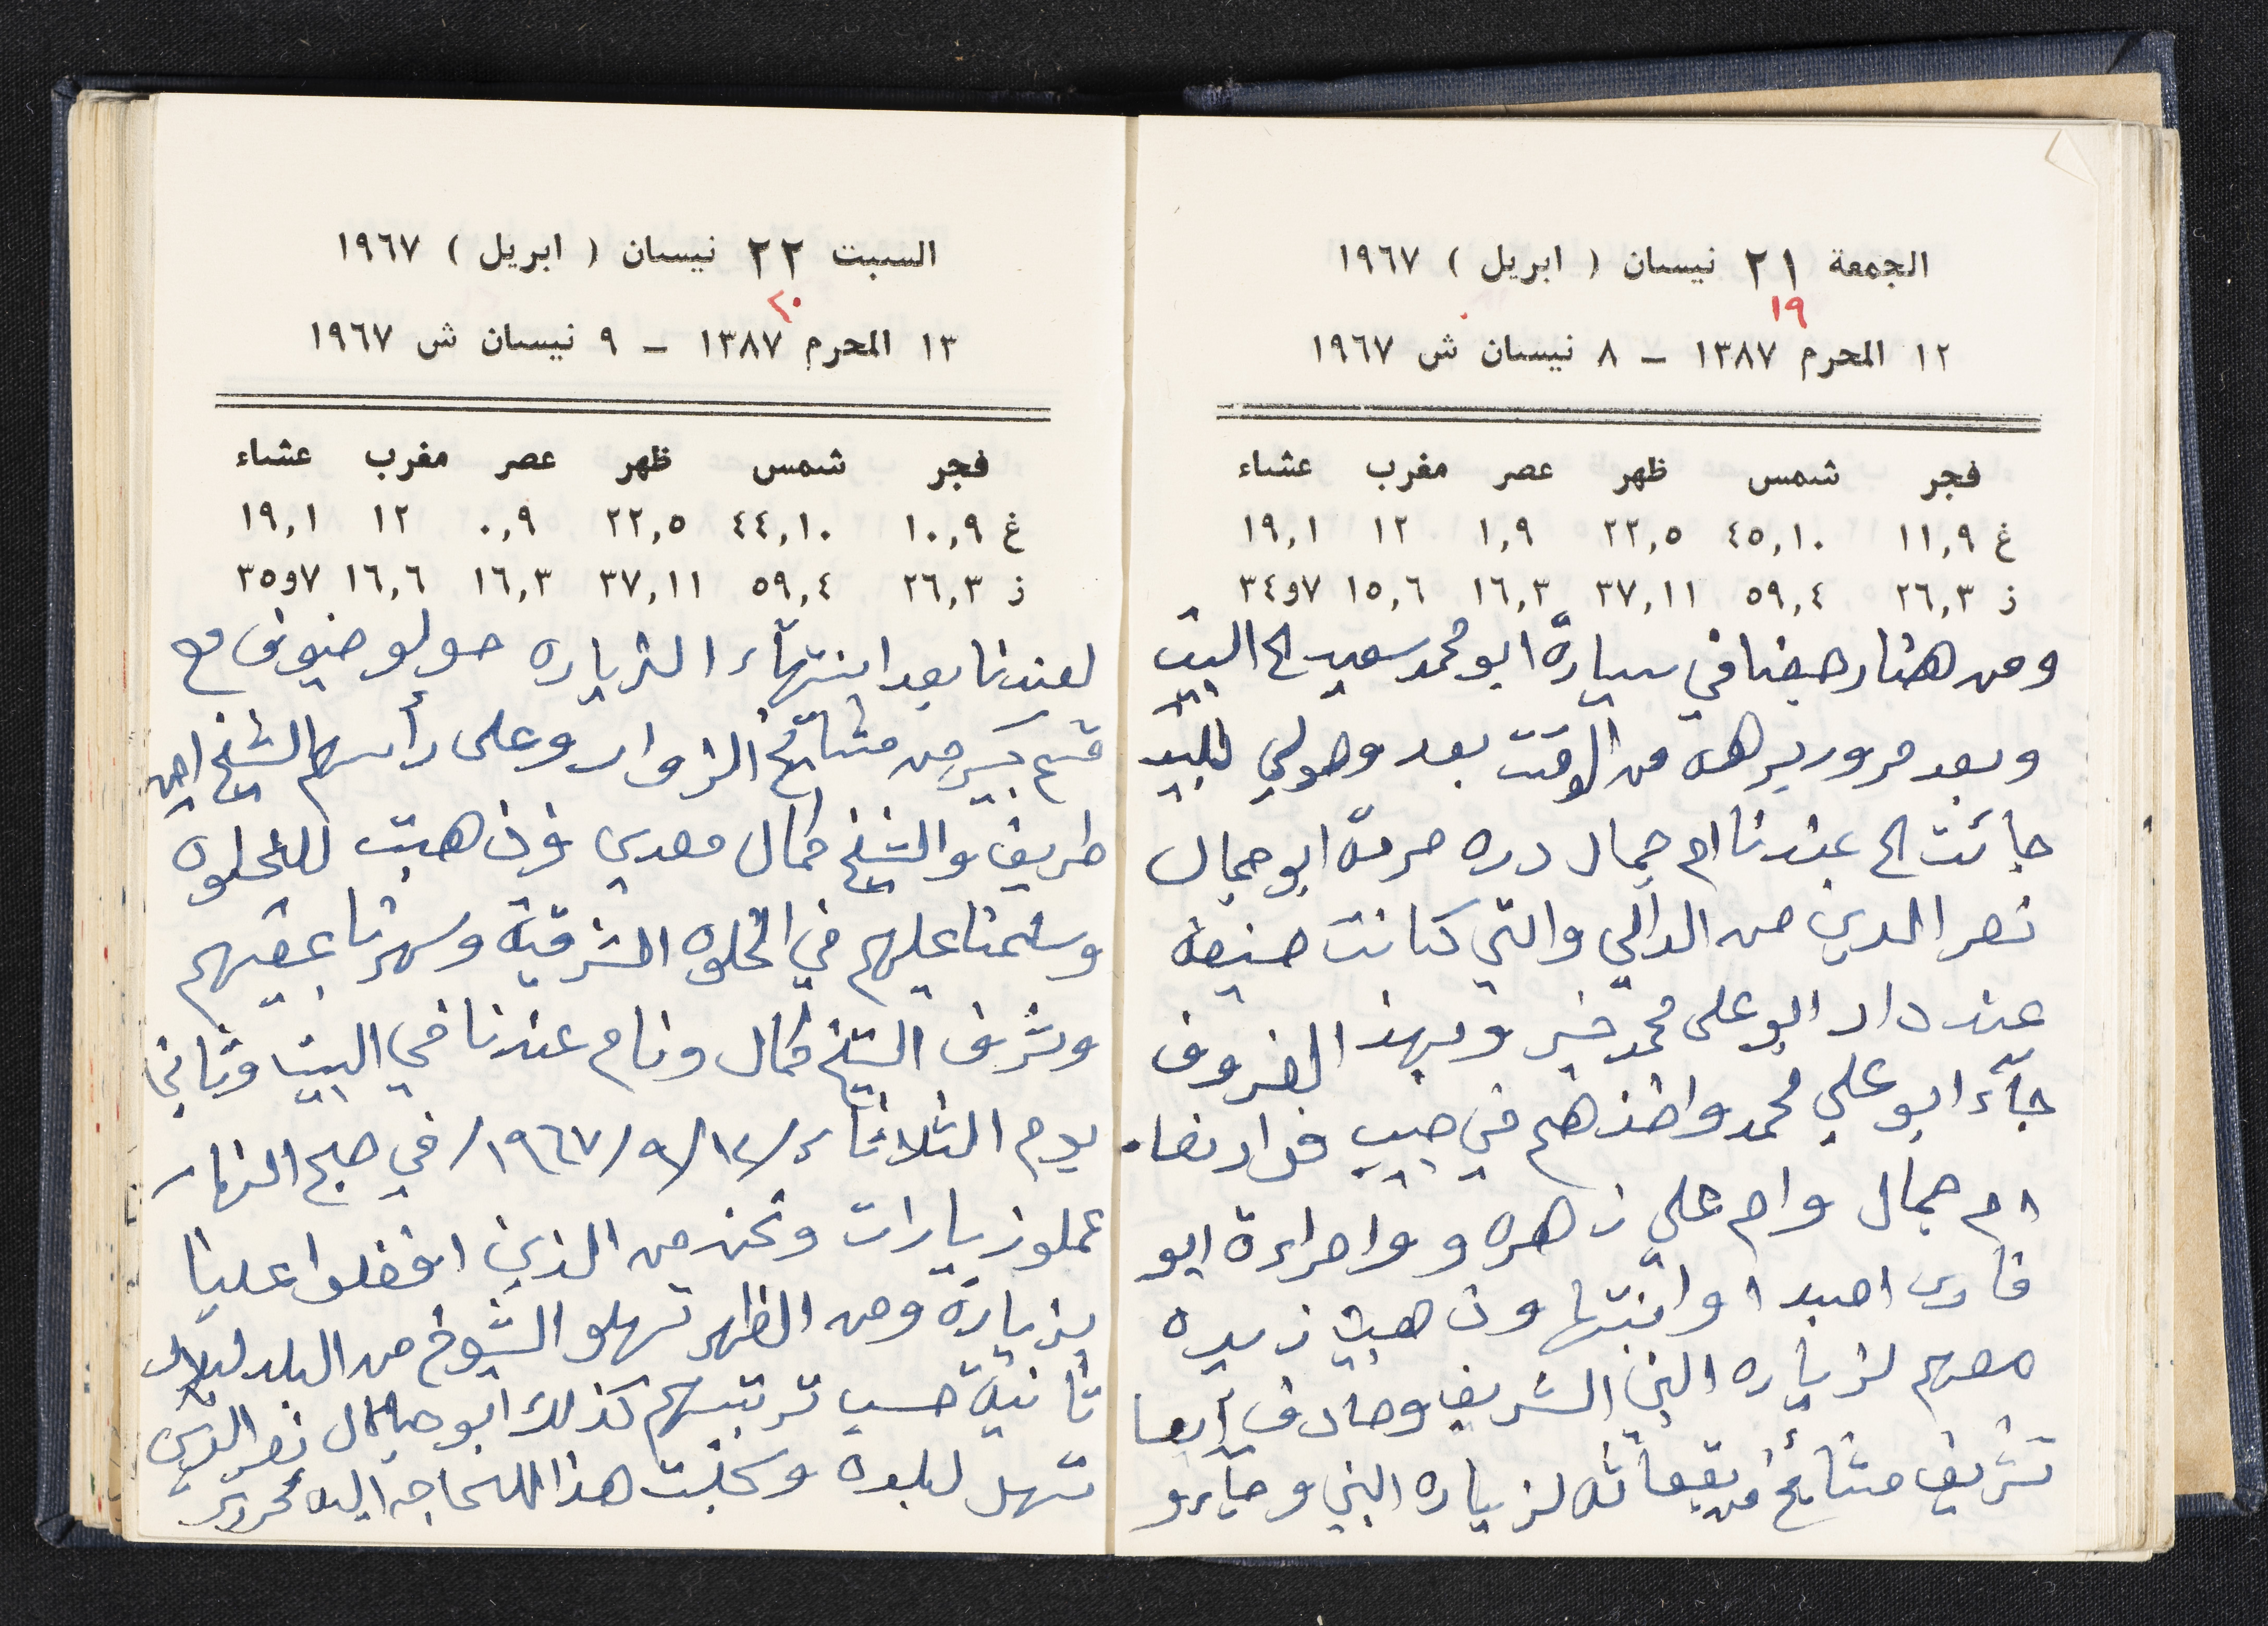 الجمعة ٢١ نيسان ( ابريل ) ١٩٦٧
١٩
١٢ المحرم ١٣٨٧ – ٨ نيسان ش ١٩٦٧
فجر شمس ظهر عصر مغرب عشاء
غ ١١,٩ ٤٥,١٠ ٢٢,٥ ١,٩ ١٢ ١٩,١
ز ٢٦,٣ ٥٩,٤ ٣٧,١١ ١٦,٣ ١٥,٦ ٣٤و٧
ومن هنا رجعنا في سيارة ابو محمد سعيد الى البيت
وبعد مرور برهه من الوقت بعد وصولي للبيت
جائت الى عندنا ام جمال دره حرمة ابو جمال
نصر الدين من الدالي والتي كانت ضيفه
عند دار ابو علي محمد خير وبهذ الضروف
جآء ابو علي محمد واخذهم في جيب فواد نفاع
ام جمال وام علي زهره و وامراءة ابو
فارس اسيد اوابنتها وذهبت زيده
معهم لزياره النبي الشريف وصادف أيضا
تشريف مشائخ من بقعاثه لزياره النبي وجآءو
السبت ٢٢ نيسان ( ابريل ) ١٩٦٧
٢٠
١٣ المحرم ١٣٨٧ – ٩ نيسان ش ١٩٦٧
فجر شمس ظهر عصر مغرب عشاء
غ ١٠,٩ ٤٤,١٠ ٢٢,٥ ٠,٩ ١٢ ١٩,١
ز ٢٦,٣ ٥٩,٤ ٣٧,١١ ١٦,٣ ١٦,٦ ٣٥و٧
لعندنا بعد اينتهآء الزياره حولو ضيوف مع
قسم كبير من مشآئخ الزوار وعلى رأسهم الشيخ امين
طريف والشيخ كمال معدي فذهبت للخلوه
وسلمنا عليهم في الخلوه الشرقية وسهرنا بمعيتهم
وشرف الشيخ كمال ونام عندنا في البيت وثاني
يوم الثلاثاء /١٢/٩/١٩٦٧/ في صبح النهار
عملو زيارات ونحن من الذين افضلوا علينا
بزيارة ومن الظهر تسهلو الشيوخ من البلد لبلاد
ثانية حسب ترتيبهم كذلك ابو جمال نصر الدين
تسهل لبلده وسجلت هذا للحاجه اليه تحريرً